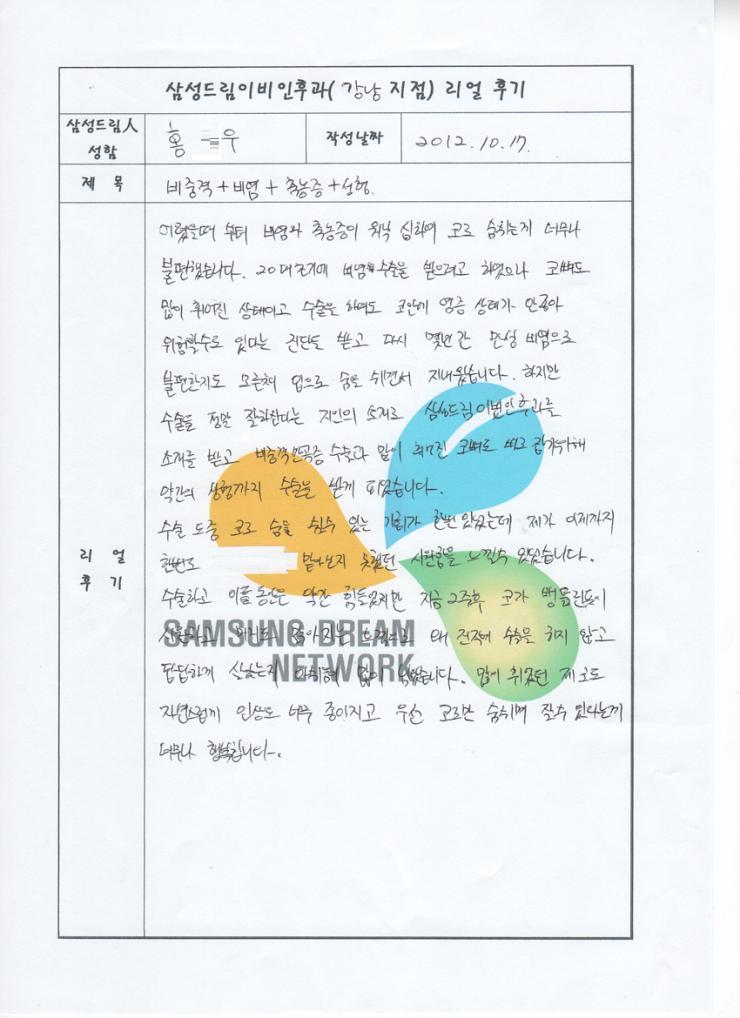 삼성드림이비인후과( 강남 지점) 리얼 후기
삼성드림人 성함
홍 우
작성날짜
2012.10.17.
제 목
비중격+비염+축농증+성형.
리 얼 후 기
어렸을때 부터 비염과 축농증이 워낙 심하여 코로 숨쉬는게 너무나
불편했습니다. 20대초기에 비염 수술을 받으려고 하였으나 코뼈도
많이 휘어진 상태이고 수술을 하여도 코안에 염증 상태가 안좋아
위험할수도 있다는 진단을 받고 다시 몇년간 만성 비염으로
불편한지도 모른체 입으로 숨을 쉬면서 지내왔습니다. 하지만
수술을 정말 잘하신다는 지인의 소개로 삼성드림이비인후과를
소개를 받고 비중격 수술과 많이 휘어진 코뼈도 바로 잡기위해
약간의 성형까지 수술을 받게 되었습니다.
수술 도중 코로 숨을 쉴수 있는 기회가 한번 있었는데 제가 이제까지
한번도 맡아보지 못했던 시원함을 느낄수 있었습니다.
수술하고 이틀동안은 약간 힘들었지만 지금 2주후 코가 뻥뚫린듯이
시원하고 왜 전자에 수술을 하지 않고
답답하게 살았는지 많이 많이 휘었던 제코도
자연스럽게 인상도 너무 좋아지고 우선 코로만 숨쉬며 잘수 있다는게
너무나 행복합니다.
SAMSUNG DREAM
NETWORK